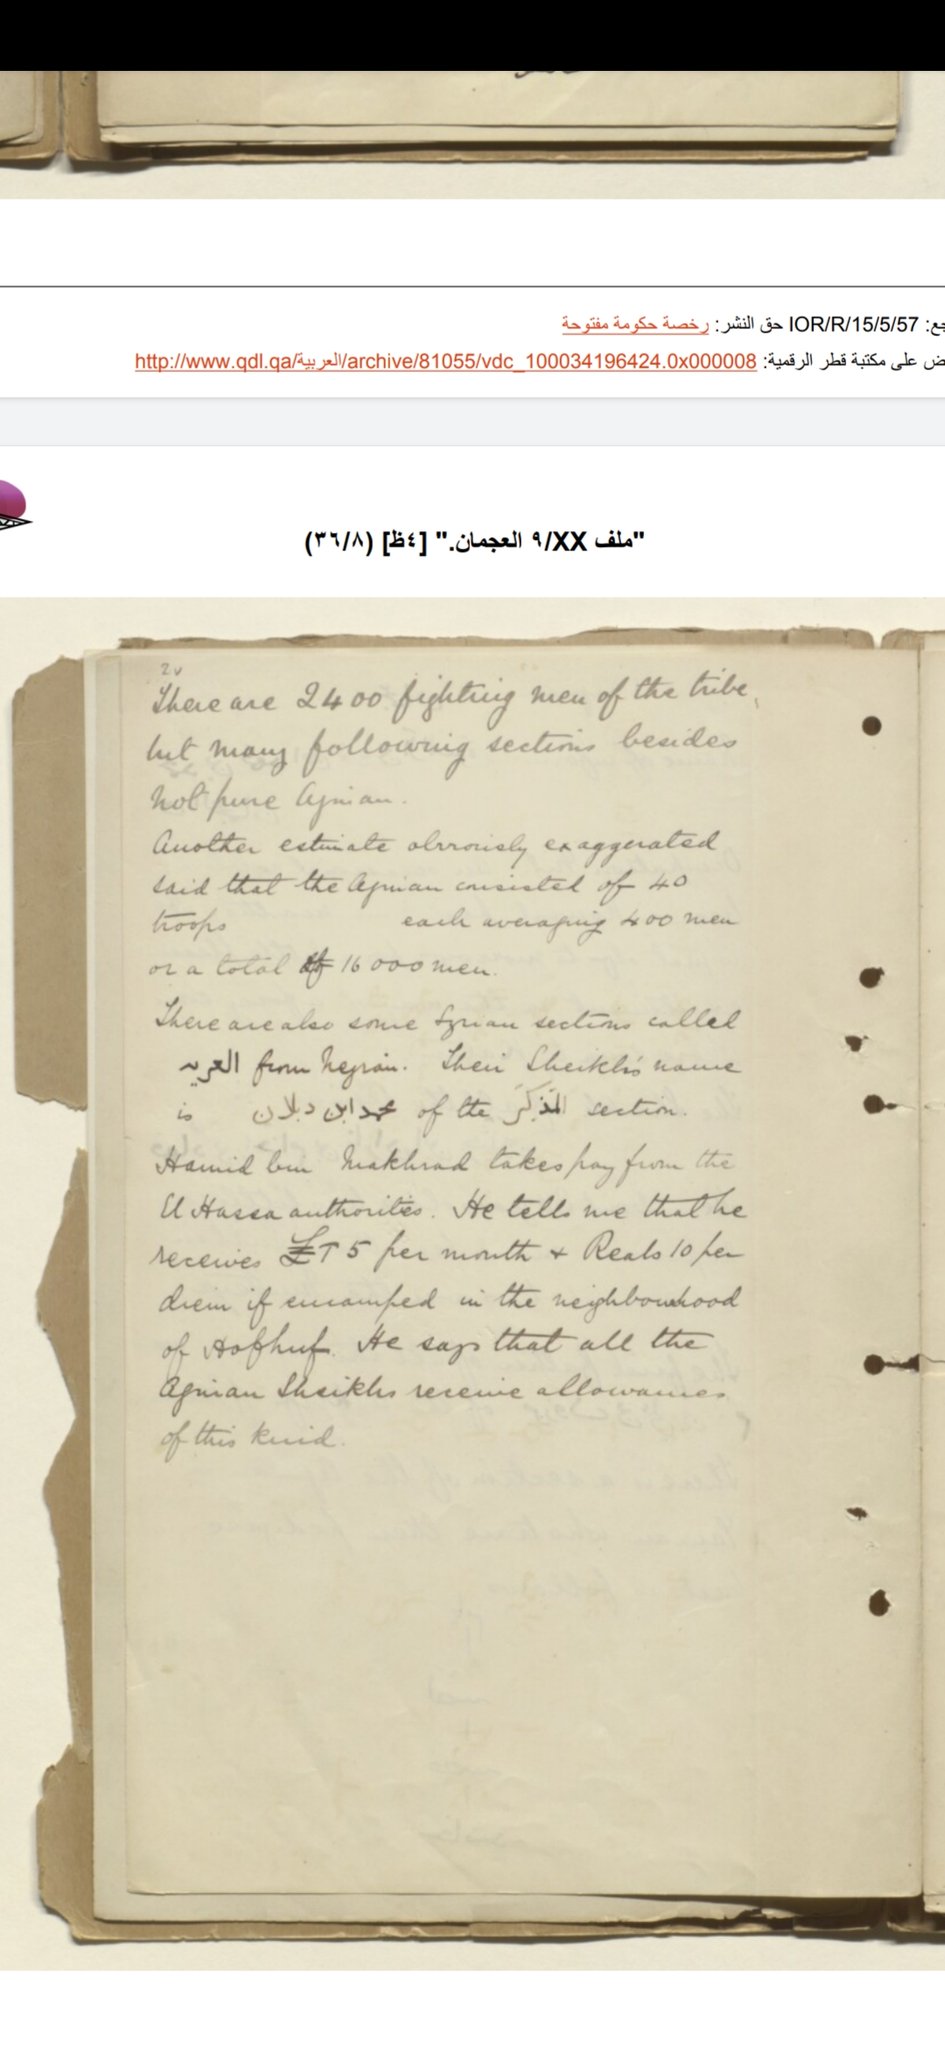 جع: IOR/R/15/5/57 حق النشر: رخصة حكومة مفتوحة
ض على مكتبة قطر الرقمية: http://www.qdl.qa/العربية/archive/81055/vdc_100034196424.0x000008
"ملف XX/٩ العجمان." [٤ظ] (٣٦/٨)
2v
There are 2400 fighting men of the tribe,
but many following sections besides
not pure Ajman.
Another estimate obviously exaggerated
said that the Ajman consisted of 40
troops each averaging 400 men
or a total of 16000 men.
There are also some sections called
from Nejran. Their Sheikh's name
is محمد ابن دبلان of the section.
Hamid bin Makhrad takes pay from the
El Hassa authorities. He tells me that he
receives £T 5 per month & Reals 10 per
diem if encamped in the neighbourhood
of Hofhuf. He says that all the
Ajman Sheikhs receive allowances
of this kind.